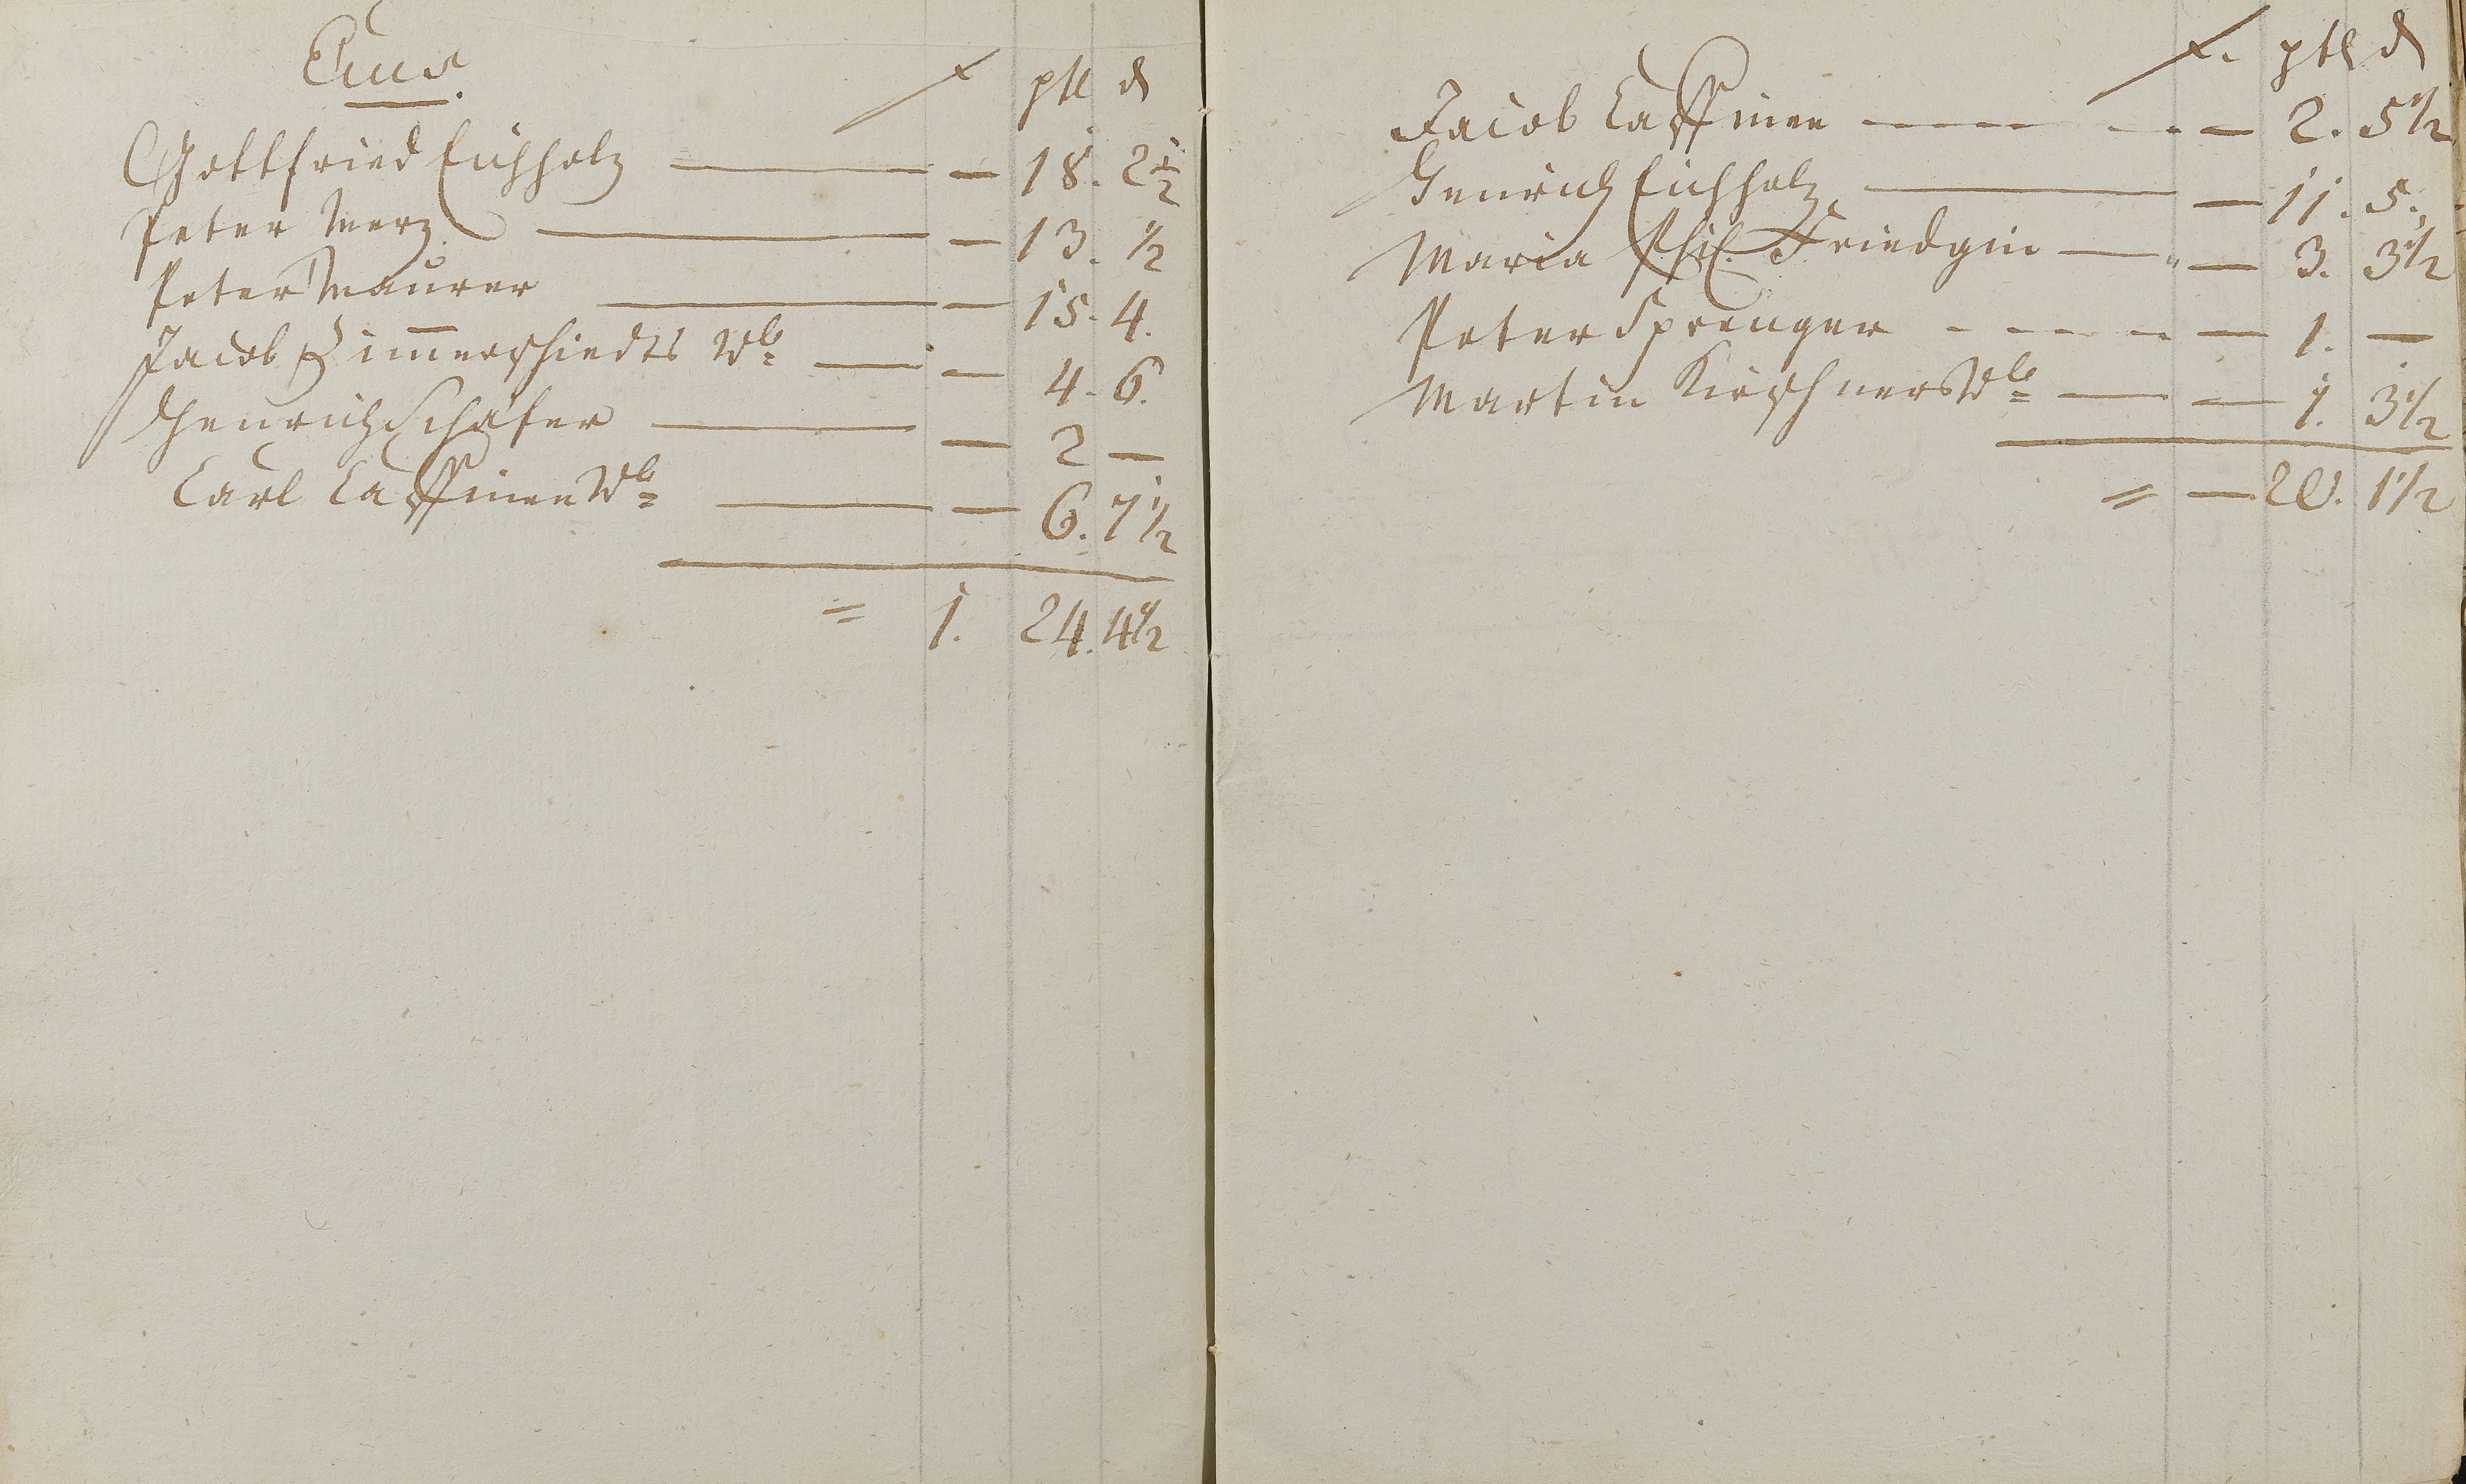 Ems.
f ptl d
Gottfried Eichholz — — 18. 2 1/2
Peter Merz — — 13. 1/2
Peter Maurer — — 15. 4.
Jacob Zim̅erschiedts Wb. — — 4. 6.
Henrich Schäfer — — 2 —
Carl Wb. — — 6. 7 1/2
= 1. 24. 4 1/2
f. ptl d
Jacob — — 2. 5 1/2
Henrich Eichholz — — 11. 5.
Maria Phil. Friedgin — — 3. 3 1/2
Peter Sprenger — — 1. —
Martin Kirschners Wb. — — 1. 3 1/2
= — 20. 1 1/2